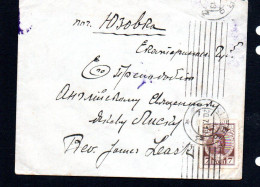 пос. Юзовка
Екатеринослав. Губ.
Его Преподобію
Англійскому Священнику
Якову Лиску
Rev. James Leask
7 7